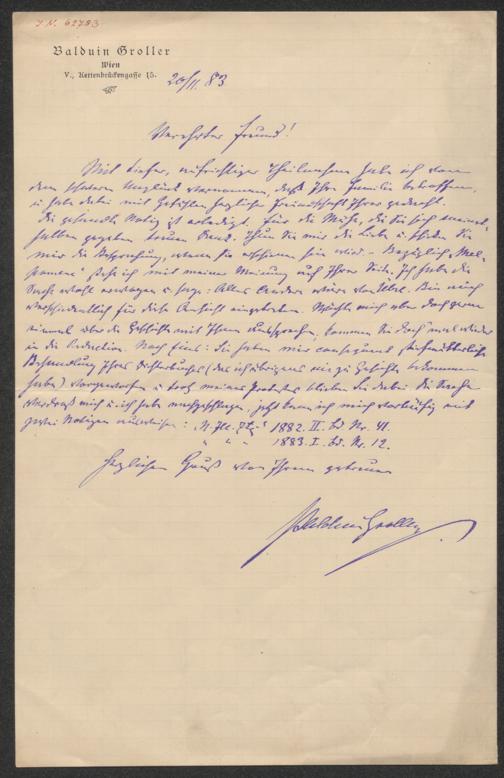 J. N. 62783
Balduin Groller
Wien
V., Kettenbrückengasse 15.
20/II. 83
Verehrter Freund!
Mit tiefer, aufrichtiger Theilnahme habe ich von
dem schweren Unglück vernommen, daß Ihre Familie betroffen,
u habe dabei mit Gefühlen herzlicher Freundschaft Ihrer gedacht.
Die gesandte Notiz ist erledigt. Für die Mühe, die Sie sich meinet-
halben gegeben, treuen Dank. Thun Sie mir die Liebe u schicken Sie
mir die Besprechung, wenn sie erschienen sein wird. – Bezüglich „Mel-
pomene" stehe ich mit meiner Meinung auf Ihrer Seite. Ich habe die
Sache wohl erwogen u sage: Alles Andere wäre von Übel. Bin auch
für diese Ansicht eingetreten. Möchte mich aber doch gern
einmal über die mit Ihnen aussprechen, kommen Sie doch mal wieder
in die Redaction. Noch Eins: Sie haben mir consequent
Behandlung Ihres Dichterbuches (das ich übrigens nie zu Gesichte bekommen
habe) vorgeworfen u trotz meines Protestes blieben Sie dabei. Die Sache
verdroß mich u ich habe nachgeschlagen, jetzt kann ich mich vorläufig mit
zwei Notizen ausweisen: „N. Ill. Ztg." 1882. II. Bd Nr. 41.
" " " 1883. I. Bd. Nr. 12.
Herzlichen Gruß von Ihrem getreuen
Balduin Groller